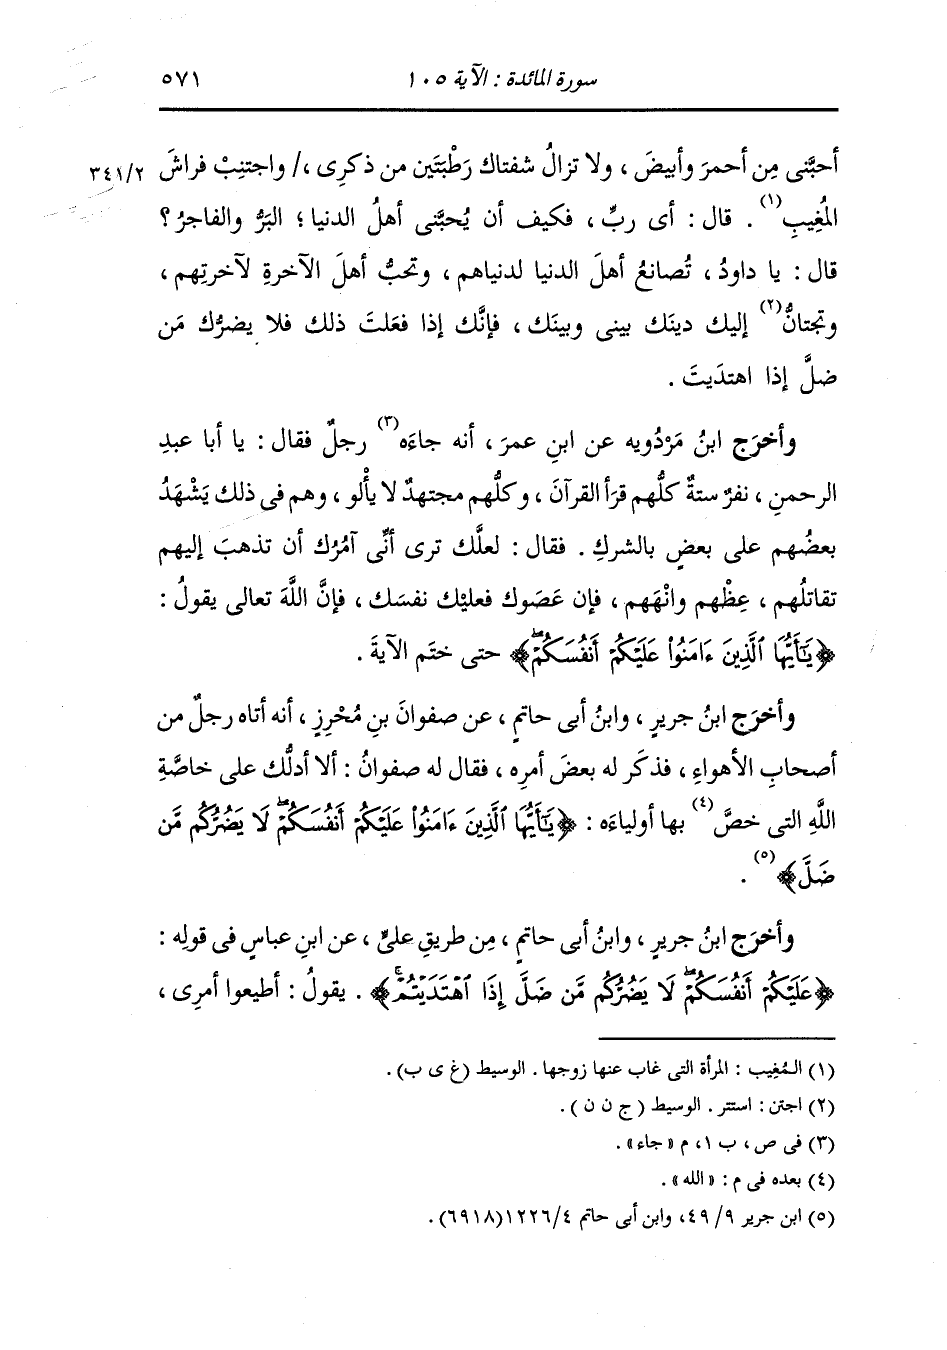 سورة المائدة : الآية ١٠٥ ٥٧١
أحبَّنى مِن أحمرَ وأبيضَ ، ولا تزالُ شفتاك رَطْبَتَين من ذكرِى ،/ واجتنِبْ فراشَ ٣٤١/٢
المُغِيبِ(١) . قال : أى ربِّ ، فكيف أن يُحبَّنى أهلُ الدنيا ؛ البَرُّ والفاجرُ ؟
قال : يا داودُ ، تُصانعُ أهلَ الدنيا لدنياهم ، وتحبُّ أهلَ الآخرةِ لآخرتِهم ،
وتجتانُّ(٢) إليك دينَك بينى وبينَك ، فإنَّك إذا فعَلتَ ذلك فلا يضرُّك مَن
ضلَّ إذا اهتدَيتَ .
وأخرَج ابنُ مَرْدُويه عن ابنِ عمرَ ، أنه جاءَه(٣) رجلٌ فقال : يا أبا عبدِ
الرحمنِ ، نفرٌ ستةٌ كلُّهم قرَأ القرآنَ ، وكلُّهم مجتهدٌ لا يأْلو ، وهم فى ذلك يَشْهَدُ
بعضُهم على بعضٍ بالشركِ . فقال : لعلَّك ترى أنِّى آمُرُك أن تذهبَ إليهم
تقاتلُهم ، عِظْهم وانْهَهم ، فإن عَصَوك فعليْك نفسَك ، فإنَّ اللَّهَ تعالى يقولُ :
﴿يَٰٓأَيُّهَا ٱلَّذِينَ ءَامَنُواْ عَلَيْكُمْ أَنفُسَكُمْۖ﴾ حتى ختَم الآيةَ .
وأخرَج ابنُ جريرٍ ، وابنُ أبى حاتمٍ ، عن صفوانَ بنِ مُحْرِزٍ ، أنه أتاه رجلٌ من
أصحابِ الأهواءِ ، فذكَر له بعضَ أمرِه ، فقال له صفوانُ : ألا أدلُّك على خاصَّةِ
اللَّهِ التى خصَّ(٤) بها أولياءَه : ﴿يَٰٓأَيُّهَا ٱلَّذِينَ ءَامَنُواْ عَلَيْكُمْ أَنفُسَكُمْۖ لَا يَضُرُّكُم مَّن
ضَلَّ﴾(٥) .
وأخرَج ابنُ جريرٍ ، وابنُ أبى حاتمٍ ، مِن طريقِ علىٍّ ، عن ابنِ عباسٍ فى قولِه :
﴿عَلَيْكُمْ أَنفُسَكُمْۖ لَا يَضُرُّكُم مَّن ضَلَّ إِذَا ٱهْتَدَيْتُمْۚ﴾ . يقولُ : أطيعوا أمرِى ،
(١) المُغِيب : المرأة التى غاب عنها زوجها . الوسيط (غ ى ب) .
(٢) اجتن : استتر . الوسيط ( ج ن ن ) .
(٣) فى ص ، ب ١، م «جاء» .
(٤) بعده فى م : «الله» .
(٥) ابن جرير ٩/ ٤٩، وابن أبى حاتم ٤/ ١٢٢٦(٦٩١٨) .